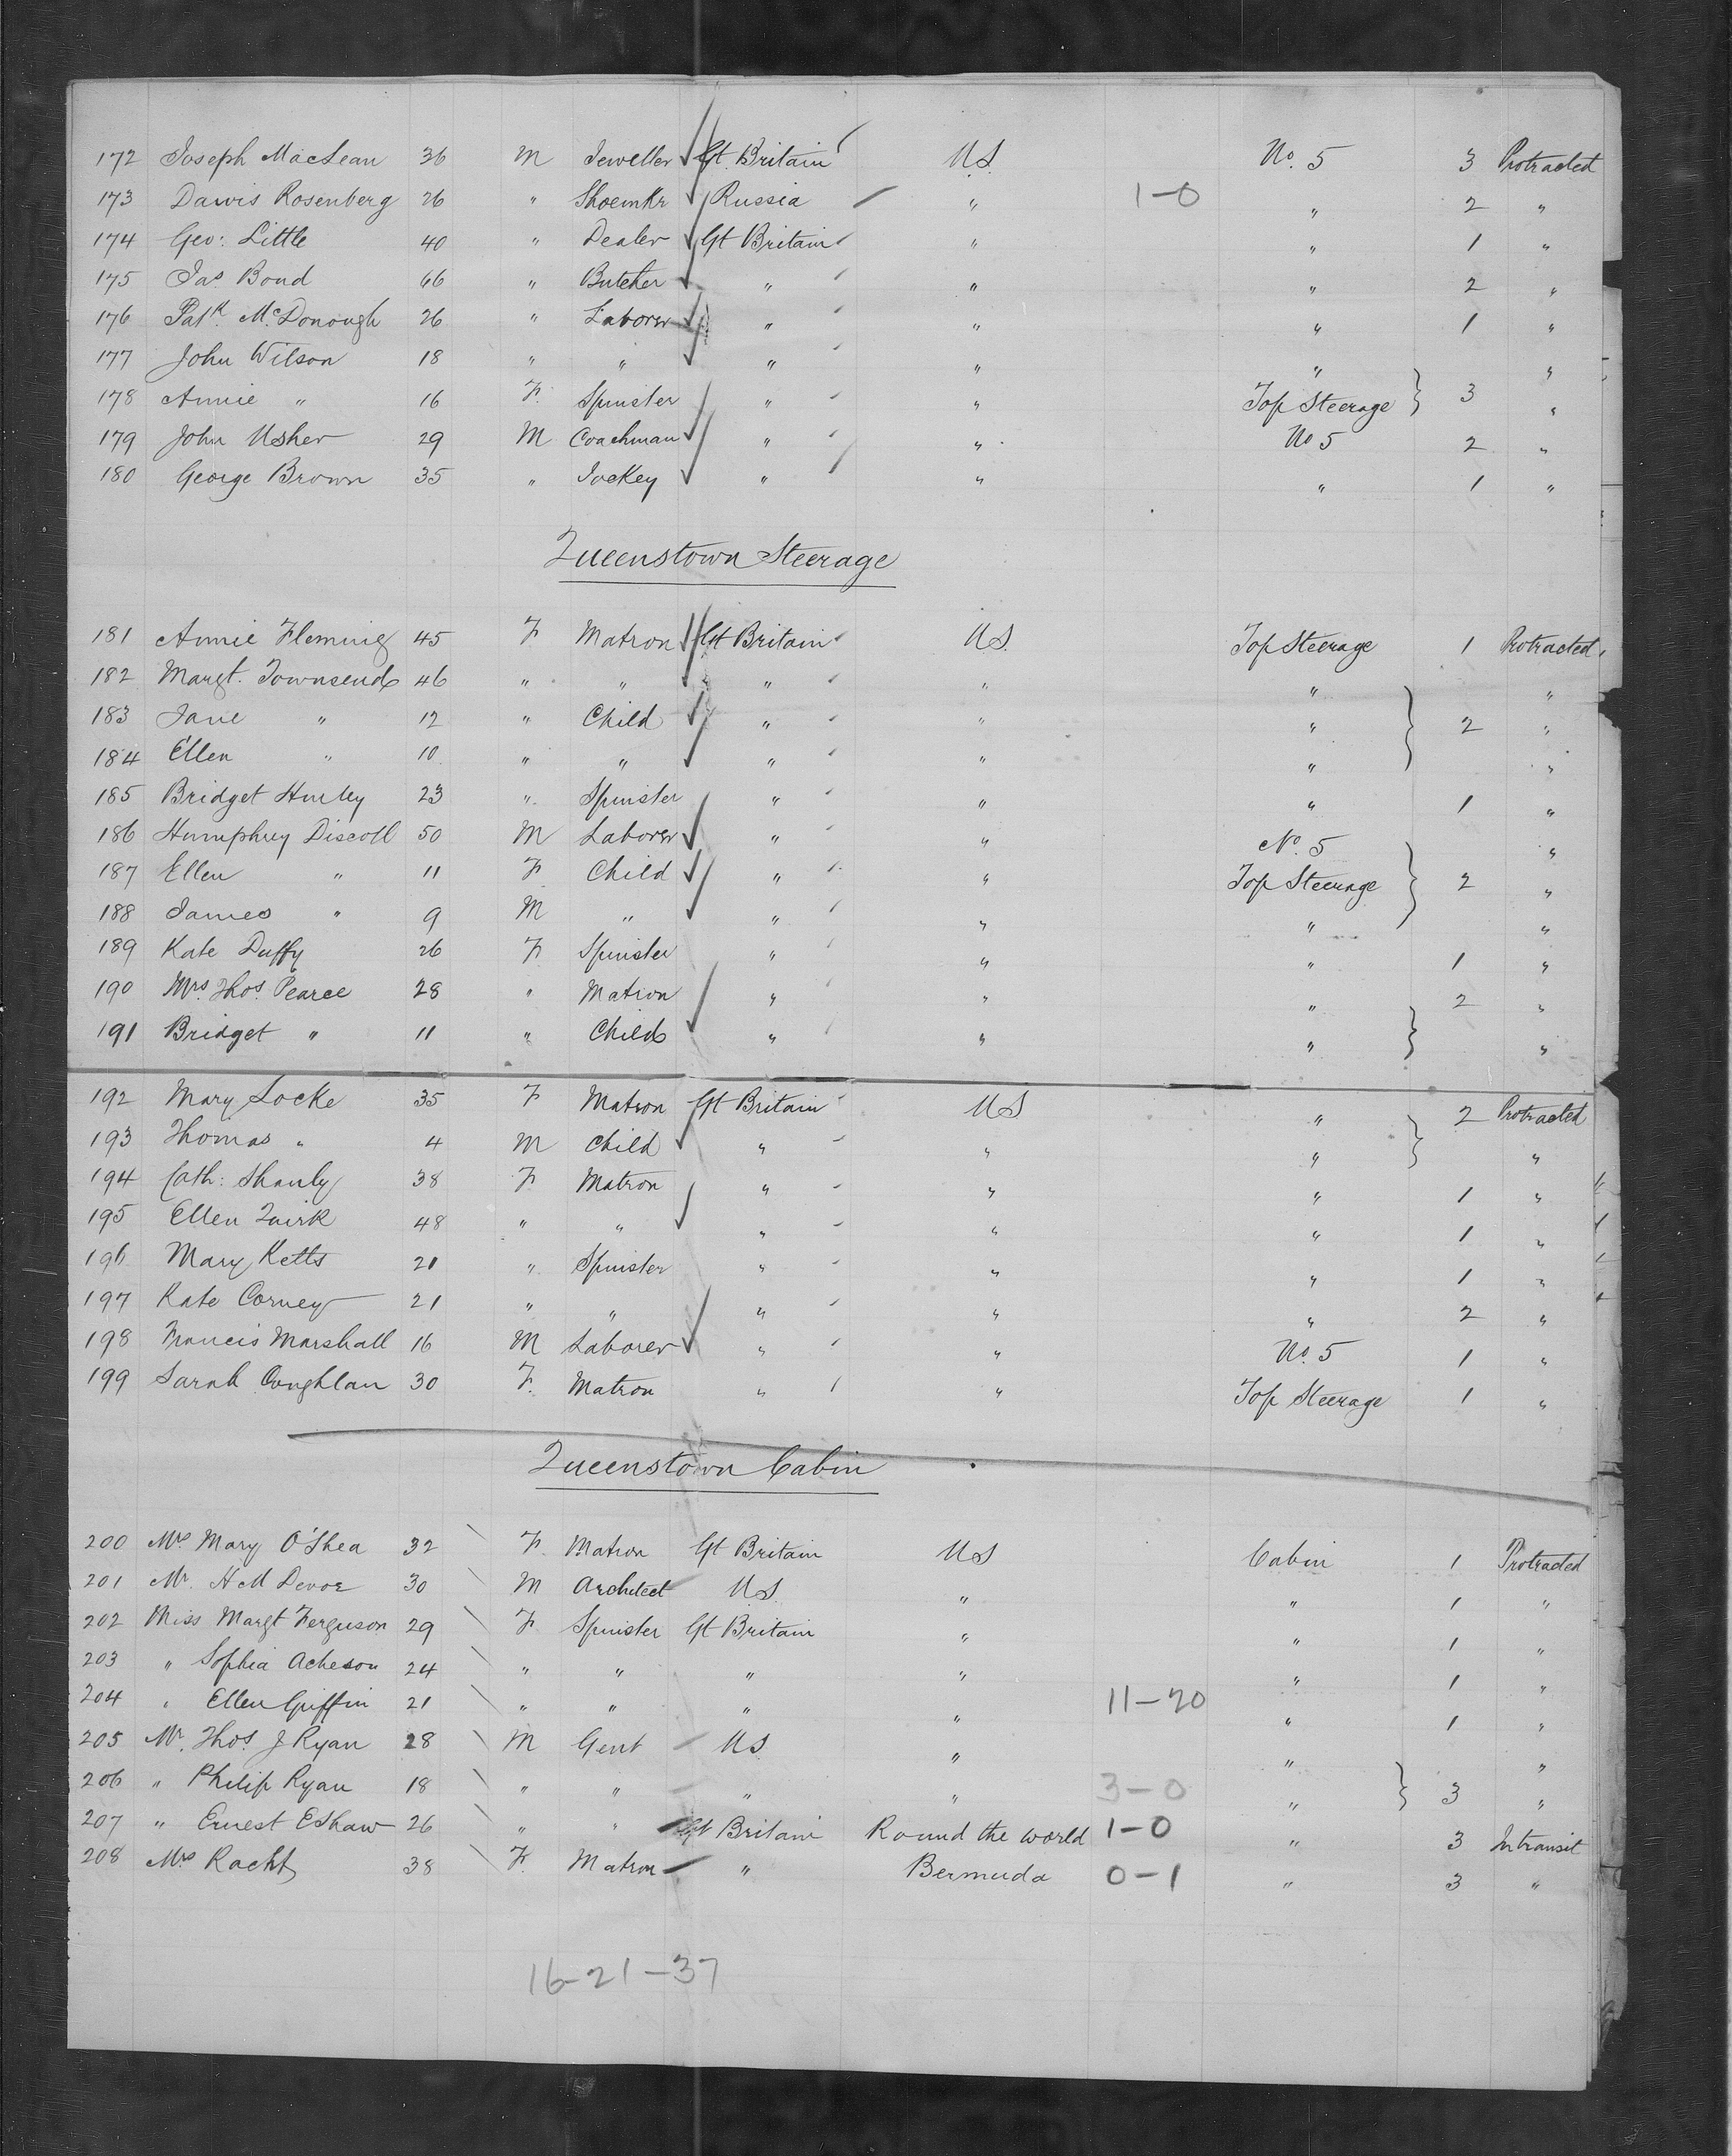 172 Joseph MacLean 36 M Jeweller Gt. Britain U.S. No. 5 3 Protracted
173 Dawis Rosenberg 26 " Shoemkr Russia " 1-0 " 2 "
174 Geo: Little 40 " Dealer Gt Britain " " 1 "
175 Jas Bond 66 " Butcher " " " 2 "
176 Patk. McDonough 26 " Laborer " " " 1 "
177 John Wilson 18 " " " " " "
178 Annie " 16 F. Spinster " " Top Steerage 3 "
179 John Usher 29 M Coachman " " No 5 2 "
180 George Brown 35 " Jockey " " " 1 "
Queenstown Steerage
181 Annie Fleming 45 F Matron Gt Britain U.S. Top Steerage 1 Protracted
182 Margt. Townsend 46 " " " " " "
183 Jane " 12 " Child " " " 2 "
184 Ellen " 10 " " " " " "
185 Bridget Hurley 23 " Spinster " " " 1 "
186 Humphrey Discoll 50 M Laborer " " No. 5 "
187 Ellen " 11 F Child " " Top Steerage 2 "
188 James " 9 M " " " " "
189 Kate Duffy 26 F Spinster " " " 1 "
190 Mrs. Thos. Pearce 28 " Matron " " " 2 "
191 Bridget " 11 " Child " " " "
192 Mary Locke 35 F Matron Gt Britain US " 2 Protracted
193 Thomas " 4 M Child " " " "
194 Cath: Shanly 38 F Matron " " " 1 "
195 Ellen Quirk 48 " " " " " 1 "
196 Mary Ketts 21 " Spinster " " " 1 "
197 Kate Corney 21 " " " " " 2 "
198 Francis Marshall 16 M Laborer " " No. 5 1 "
199 Sarah Coughlan 30 F. Matron " " Top Steerage 1 "
Queenstown Cabin
200 Mrs Mary O'Shea 32 F. Matron Gt Britain US Cabin 1 Protracted
201 Mr. H M Devoe 30 M Architect U.S. " " 1 "
202 Miss Margt Ferguson 29 F Spinster Gt Britain " " 1 "
203 " Sophia Acheson 24 " " " " " 1 "
204 " Ellen Griffin 21 " " " " 11-20 " 1 "
205 Mr. Thos. J Ryan 28 M Gent U.S. " " "
206 " Philip Ryan 18 " " " " 3-0 " 3 "
207 " Ernest E Shaw 26 " " Gt Britain Round the world 1-0 " 3 Intransit
208 Mrs Racht 38 F. Matron " Bermuda 0-1 " 3 "
16-21-37